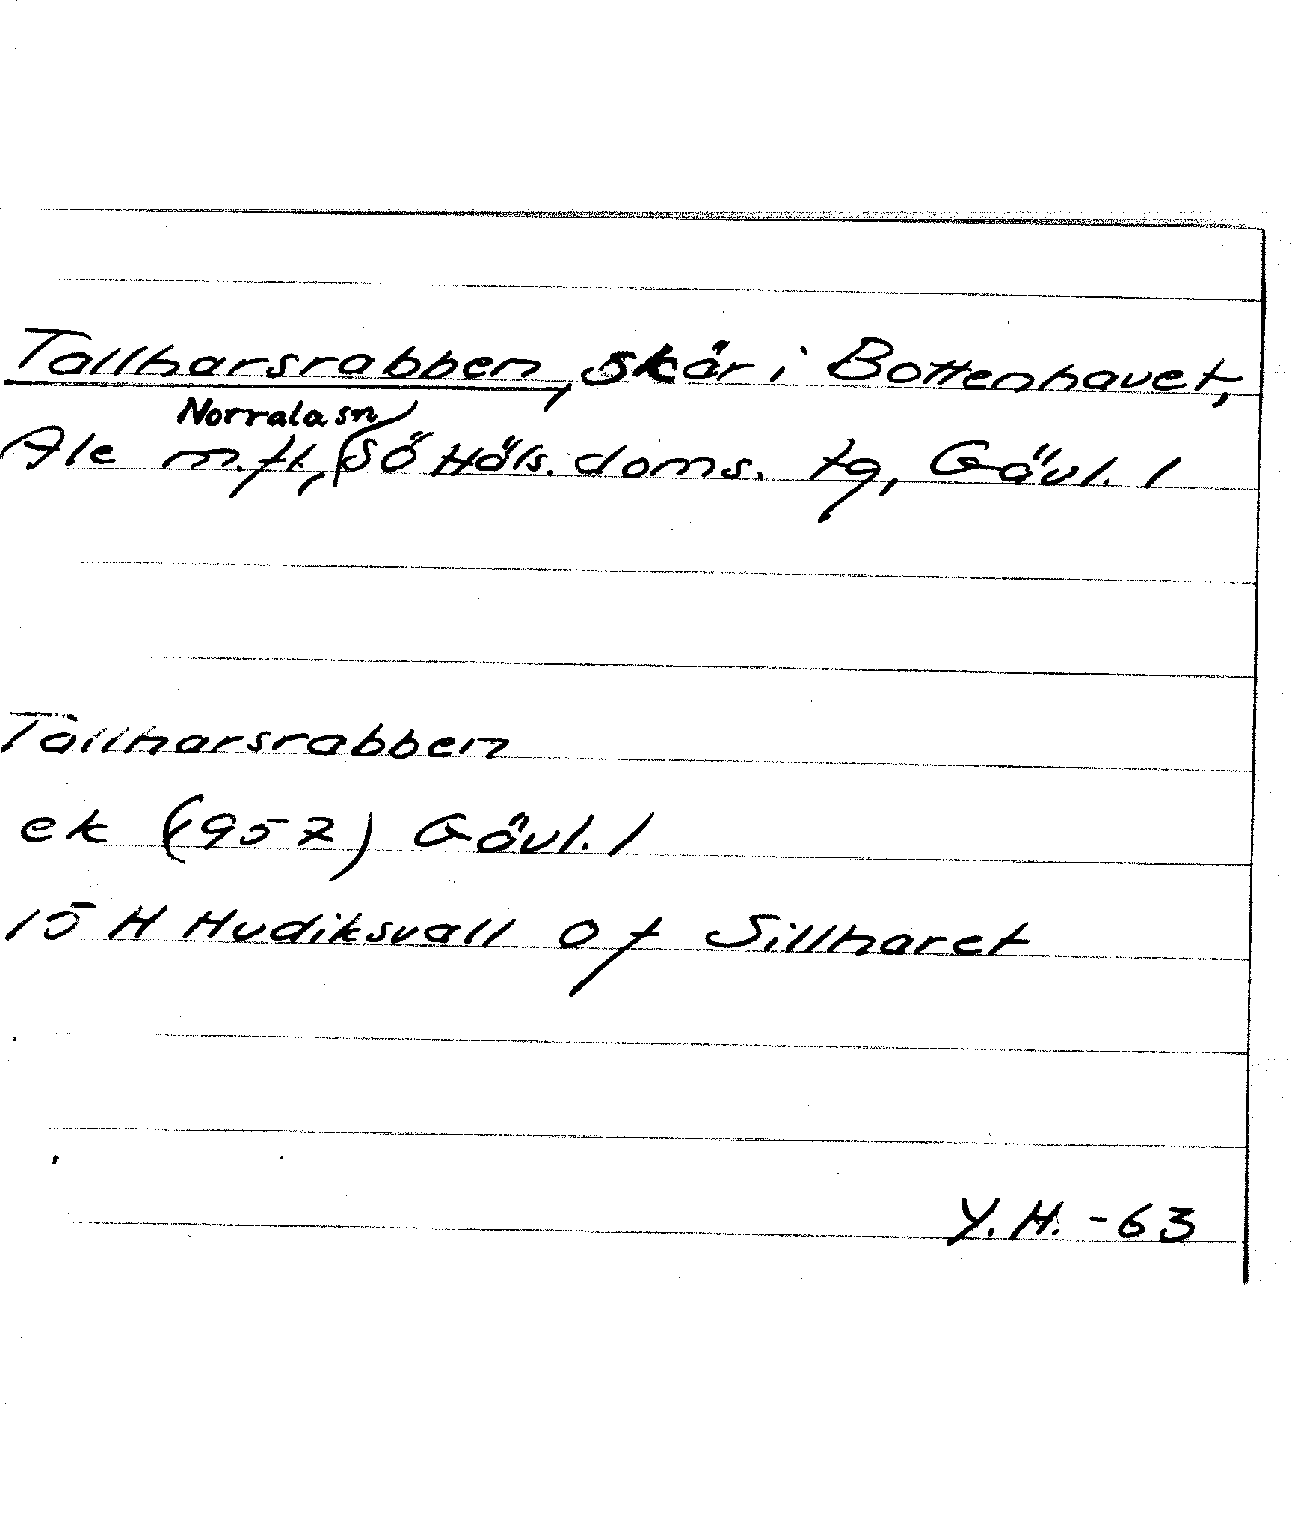 Tallharsrabben, skär i Bottenhavet,
Norrala sn
Ale m.fl., Sö Häls. doms. tg, Gävl. l
Tallharsrabben
ek (1957) Gävl. l
15 H Hudiksvall Of Sillharet
Y.H. -63